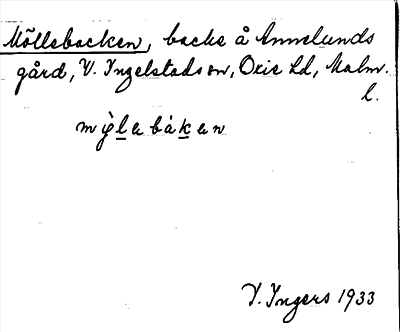 Möllebacken, backe å Annelunds
gård, V. Ingelstads sn, Oxie hd, Malm.
l.
mø̀lebáken
I. Ingers 1933